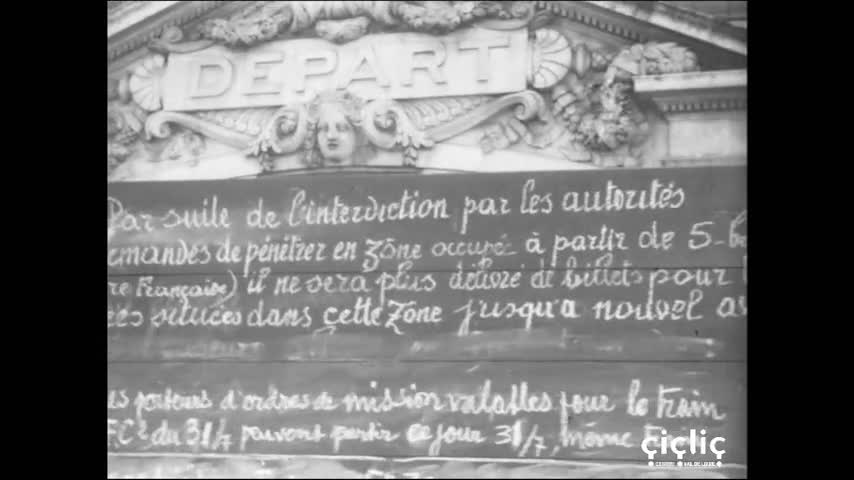 DEPART
Par suite de l'interdiction par les autorités
mandes de pénétrer en zône occupée à partir de 5-h
re Française) il ne sera plus délivré de billets pour l
ées situées dans cette zone jusqu'a nouvel av
es porteurs d'ordres de mission valables pour le train
du 31/7 peuvent partir ce jour 31/7, même
ciclic
CENTRE VAL DE LOIRE